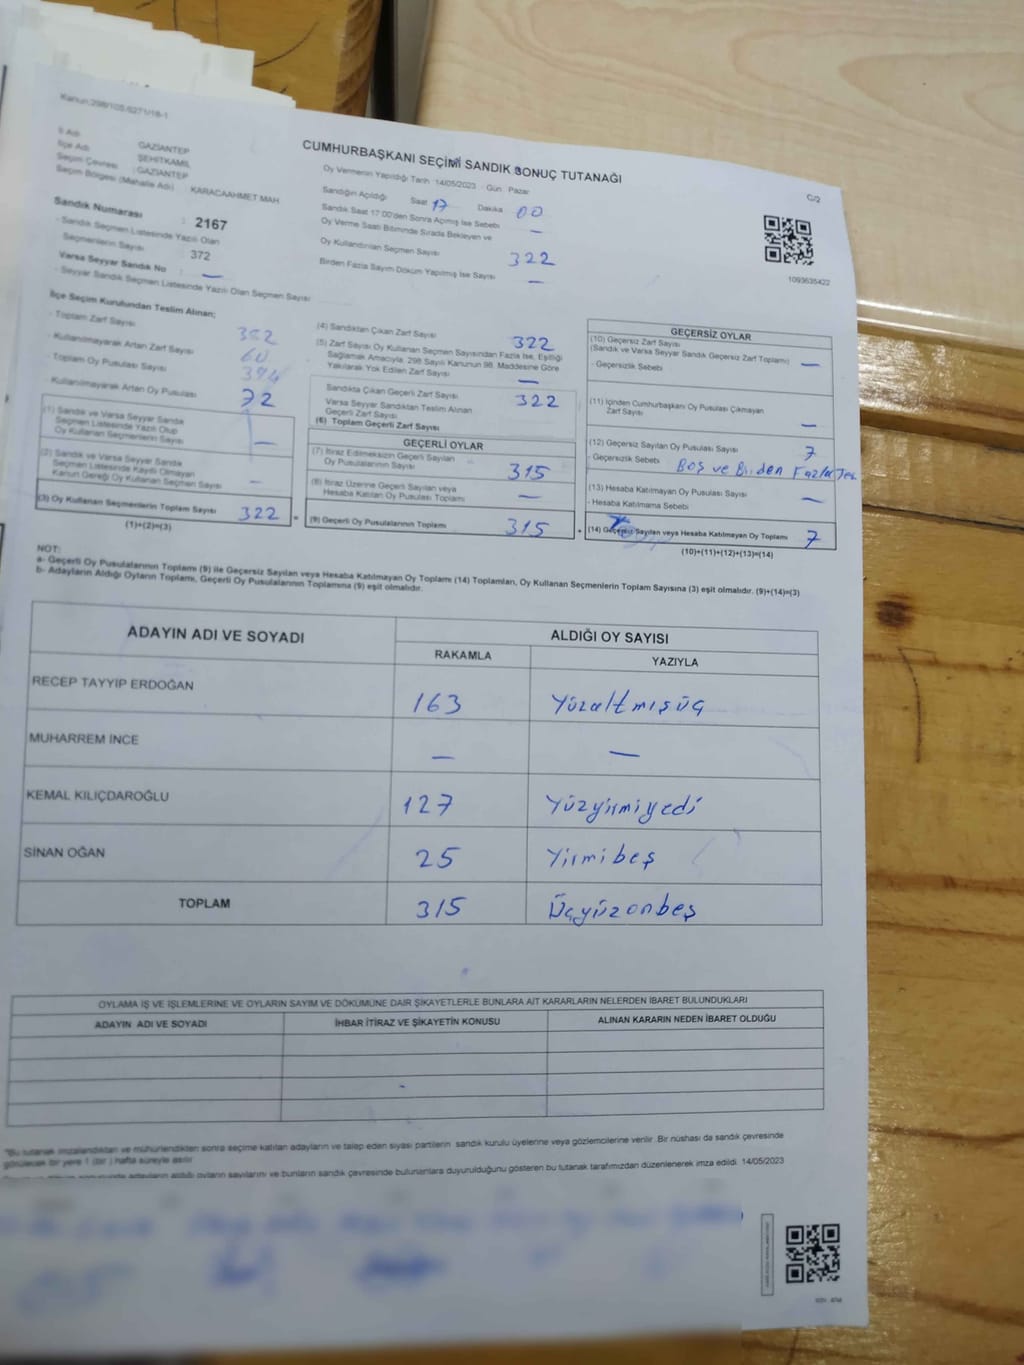 Kanun:298/105,6271/18-1
İl Adı : GAZİANTEP
İlçe Adı : ŞEHİTKAMİL
Seçim Çevresi : GAZİANTEP
Seçim Bölgesi (Mahalle Adı) : KARACAAHMET MAH
Sandık Numarası : 2167
- Sandık Seçmen Listesinde Yazılı Olan
Seçmenlerin Sayısı : 372
Varsa Seyyar Sandık No : —
- Seyyar Sandık Seçmen Listesinde Yazılı Olan Seçmen Sayısı
CUMHURBAŞKANI SEÇİMİ SANDIK SONUÇ TUTANAĞI
Oy Vermenin Yapıldığı Tarih : 14/05/2023 - Gün : Pazar
Sandığın Açıldığı Saat 17 Dakika 00
Sandık Saat 17:00'den Sonra Açılmış İse Sebebi —
Oy Verme Saati Bitiminde Sırada Bekleyen ve
Oy Kullandırılan Seçmen Sayısı 322
Birden Fazla Sayım Döküm Yapılmış İse Sayısı —
C/2
1093635422
İlçe Seçim Kurulundan Teslim Alınan;
- Toplam Zarf Sayısı
- Kullanılmayarak Artan Zarf Sayısı 60
- Toplam Oy Pusulası Sayısı 394
- Kullanılmayarak Artan Oy Pusulası 72
(1) Sandık ve Varsa Seyyar Sandık
Seçmen Listesinde Yazılı Olup
Oy Kullanan Seçmenlerin Sayısı —
(2) Sandık ve Varsa Seyyar Sandık
Seçmen Listesinde Kayıtlı Olmayan
Kanun Gereği Oy Kullanan Seçmen Sayısı —
(3) Oy Kullanan Seçmenlerin Toplam Sayısı 322
(1)+(2)=(3)
(4) Sandıktan Çıkan Zarf Sayısı 322
(5) Zarf Sayısı Oy Kullanan Seçmen Sayısından Fazla İse, Eşitliği
Sağlamak Amacıyla, 298 Sayılı Kanunun 98. Maddesine Göre
Yakılarak Yok Edilen Zarf Sayısı —
Sandıkta Çıkan Geçerli Zarf Sayısı 322
Varsa Seyyar Sandıktan Teslim Alınan
Geçerli Zarf Sayısı
(6) Toplam Geçerli Zarf Sayısı
GEÇERLİ OYLAR
(7) İtiraz Edilmeksizin Geçerli Sayılan
Oy Pusulalarının Sayısı 315
(8) İtiraz Üzerine Geçerli Sayılan veya
Hesaba Katılan Oy Pusulası Toplamı —
(9) Geçerli Oy Pusulalarının Toplamı 315
GEÇERSİZ OYLAR
(10) Geçersiz Zarf Sayısı
(Sandık ve Varsa Seyyar Sandık Geçersiz Zarf Toplamı) —
- Geçersizlik Sebebi
(11) İçinden Cumhurbaşkanı Oy Pusulası Çıkmayan
Zarf Sayısı —
(12) Geçersiz Sayılan Oy Pusulası Sayısı 7
- Geçersizlik Sebebi Boş ve Birden Fazla
(13) Hesaba Katılmayan Oy Pusulası Sayısı —
- Hesaba Katılmama Sebebi
(14) Geçersiz Sayılan veya Hesaba Katılmayan Oy Toplamı 7
(10)+(11)+(12)+(13)=(14)
NOT:
a- Geçerli Oy Pusulalarının Toplamı (9) ile Geçersiz Sayılan veya Hesaba Katılmayan Oy Toplamı (14) Toplamları, Oy Kullanan Seçmenlerin Toplam Sayısına (3) eşit olmalıdır. (9)+(14)=(3)
b- Adayların Aldığı Oyların Toplamı, Geçerli Oy Pusulalarının Toplamına (9) eşit olmalıdır.
ADAYIN ADI VE SOYADI ALDIĞI OY SAYISI
RAKAMLA YAZIYLA
RECEP TAYYİP ERDOĞAN 163 Yüzaltmışüç
MUHARREM İNCE — —
KEMAL KILIÇDAROĞLU 127 Yüzyirmiyedi
SİNAN OĞAN 25 Yirmibeş
TOPLAM 315 Üçyüzonbeş
OYLAMA İŞ VE İŞLEMLERİNE VE OYLARIN SAYIM VE DÖKÜMÜNE DAİR ŞİKAYETLERLE BUNLARA AİT KARARLARIN NELERDEN İBARET BULUNDUKLARI
ADAYIN ADI VE SOYADI İHBAR İTİRAZ VE ŞİKAYETİN KONUSU ALINAN KARARIN NEDEN İBARET OLDUĞU
"Bu tutanak imzalandıktan ve mühürlendikten sonra seçime katılan adayların ve talep eden siyasi partilerin sandık kurulu üyelerine veya gözlemcilerine verilir .Bir nüshası da sandık çevresinde
görülecek bir yere 1 (bir ) hafta süreyle asılır
adayların aldığı oyların sayılarını ve bunların sandık çevresinde bulunanlara duyurulduğunu gösteren bu tutanak tarafımızdan düzenlenerek imza edildi. 14/05/2023